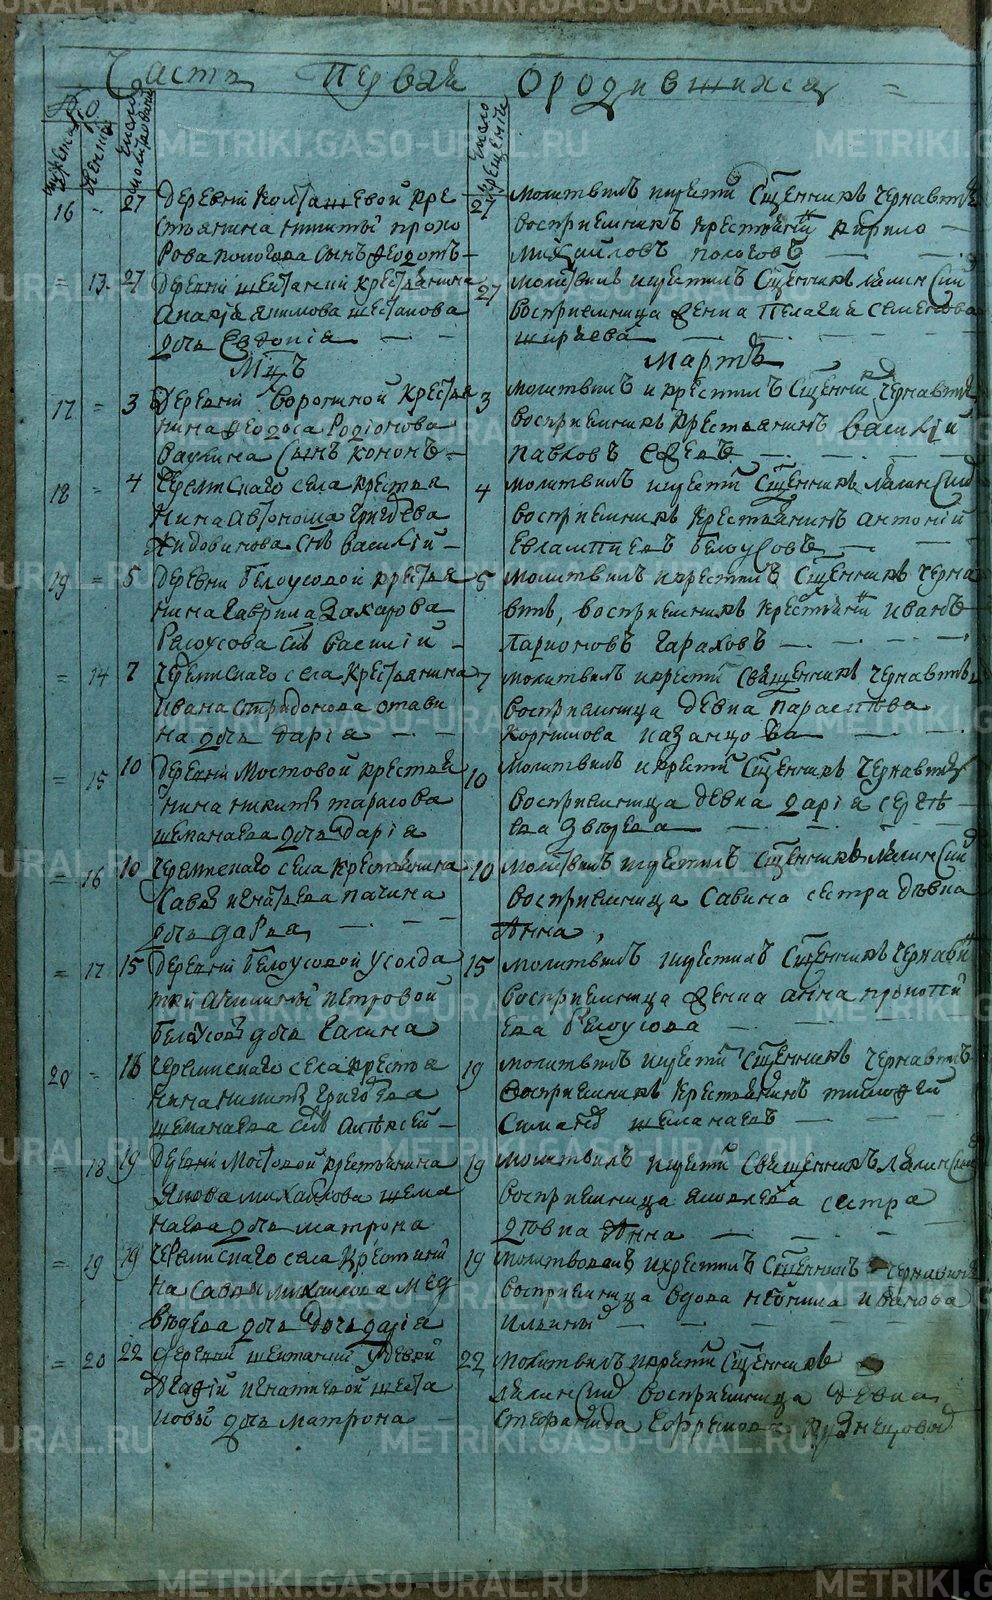 Часть первая о родившихся
число рожденій
число крещенія
16 27 Деревни Колташевой кре
стьянина Никиты Прохо
рова Пологова сынъ Ѳедотъ
27 молитвилъ и крести Сщенникъ Чернавинъ
восприемникъ крестьянинъ Кирило
Михайловъ Пологовъ
13 27 Деревни Шайтанки крестьянина
Якимова Шестакова
дочь Евдокія
27 молитвилъ и крестилъ Сщенникъ Лялинский
восприемница женка Пелагия Семенова
Ширяева
Мцъ Мартъ
17 3 Деревни Ворониной крестья
нина Ѳедоса Родіонова
Ваулина сынъ Кононъ
3 молитвилъ и крестилъ Сщенникъ Чернавинъ
восприемникъ крестьянинъ Василий
Павловъ
18 4 Черемисского села крестья
нина Автонома Григорьева
Жидовинова снъ Василій
4 молитвилъ и крести Сщенникъ Лялинский
восприемникъ крестьянинъ Антоній
Евлампиевъ Белоусовъ
19 5 Деревни Белоусовой крестья
нина Гаврила Захарова
Белоусова снъ Василій
5 молитвилъ и крестилъ Сщенникъ Черна
винъ, восприемникъ крестьянинъ Иванъ
Ларионовъ Тараховъ
14 7 Черемисского села крестьянина
Ивана Спиридонова
дочь Дарія
7 молитвилъ и крести Священникъ Чернавинъ
восприемница девка Параскѣва
Корнилова Казанцова
15 10 Деревни Мостовой крестья
нина Никиты Тарасова
Шеманаева дочь Дарія
10 Молитвилъ и крести Сщенникъ Чернавинъ
восприемница девка Дарія Сергѣ
ева Зверева
16 10 Черемисского села крестьянина
Савы Игнатьева Пачина
дочь Дарья
10 молитвилъ и крестилъ Сщенникъ Лялинский
восприемница Савина сестра дѣвка
Анна
17 15 Деревни Белоусовой у солда
тки Акилины Петровой
Белоусовы дочь Галина
15 молитвилъ и крестилъ Сщенникъ Чернавинъ
восприемница женка Анна Прокопи
ева Белоусова
20 18 Черемисского села крестья
нина Никиты Григорьева
Шеманаева снъ Алѣксей
19 молитвилъ и крести Сщенникъ Чернавинъ
восприемникъ крестьянинъ Тимофей
Шеманаевъ
18 19 Деревни Мостовой крестьянина
Якова Михайлова Шема
наева дочь Матрона
19 молитвилъ и крести Священникъ Лялинский
восприемница Яковлева сестра
девка Анна
19 19 Черемисского села крестьяни
на Савы Михаилова Мед
вѣдева дочь Дарія
19 молитвовалъ и крестилъ Сщенникъ Чернавинъ
восприемница вдова Неонила Иванова
Ильины
20 22 деревни Шайтанки у девки
Игнатиевой Шеста
ковы дочь Матрона
22 молитвилъ и крести Сщенникъ
Лялинский восприемница девка
Стефанида Ефремова Кузнецовой
METRIKI.GASO-URAL.RU